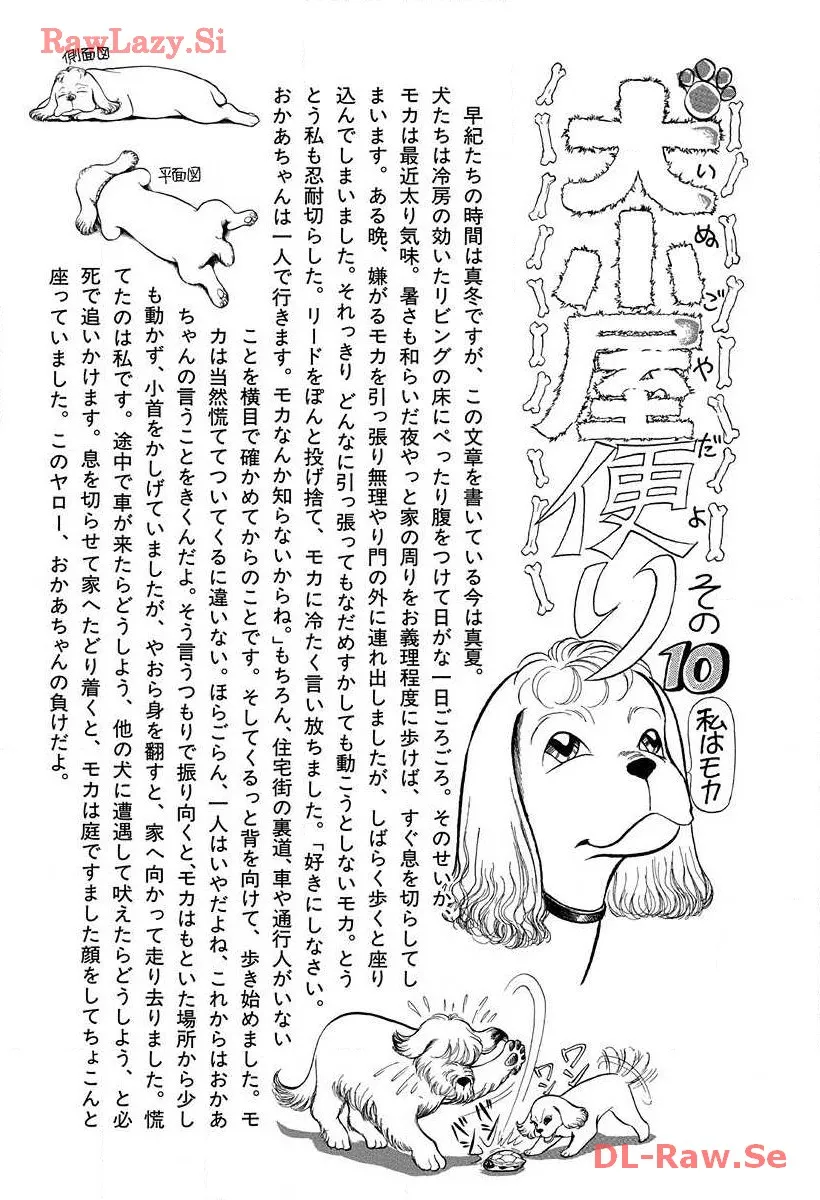 RawLazy.Si
犬小屋便り その10
いぬごやだよ
私はモカ
側面図
平面図
早紀たちの時間は真冬ですが、この文章を書いている今は真夏。
犬たちは冷房の効いたリビングの床にぺったり腹をつけて日がな一日ごろごろ。そのせいか、
モカは最近太り気味。暑さも和らいだ夜やっと家の周りをお義理程度に歩けば、すぐ息を切らしてし
まいます。ある晩、嫌がるモカを引っ張り無理やり門の外に連れ出しましたが、しばらく歩くと座り
込んでしまいました。それっきり どんなに引っ張ってもなだめすかしても動こうとしないモカ。とう
とう私も忍耐切らした。リードをぽんと投げ捨て、モカに冷たく言い放ちました。「好きにしなさい。
おかあちゃんは一人で行きます。モカなんか知らないからね。」もちろん、住宅街の裏道、車や通行人がいない
ことを横目で確かめてからのことです。そしてくるっと背を向けて、歩き始めました。モ
カは当然慌ててついてくるに違いない。ほらごらん、一人はいやだよね、これからはおかあ
ちゃんの言うことをきくんだよ。そう言うつもりで振り向くと、モカはもといた場所から少し
も動かず、小首をかしげていましたが、やおら身を翻すと、家へ向かって走り去りました。慌
てたのは私です。途中で車が来たらどうしよう、他の犬に遭遇して吠えたらどうしよう、と必
死で追いかけます。息を切らせて家へたどり着くと、モカは庭ですました顔をしてちょこんと
座っていました。このヤロー、おかあちゃんの負けだよ。
ワン
ワン
DL-Raw.Se